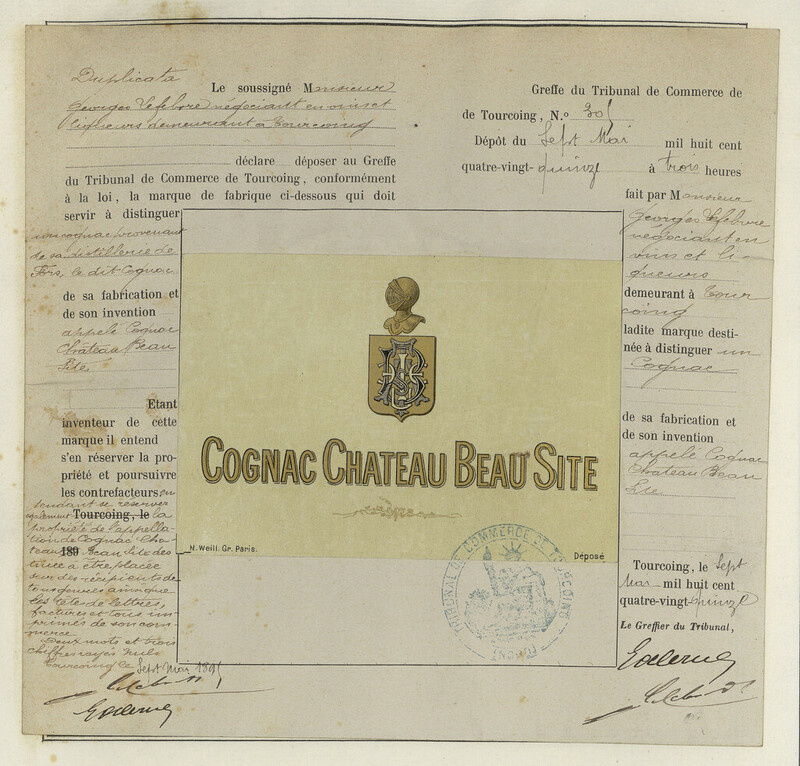 Duplicata
Le soussigné Monsieur
Georges Lefebvre négociant en vins et
liqueurs demeurant à Tourcoing
déclare déposer au Greffe
du Tribunal de Commerce de Tourcoing, conformément
à la loi, la marque de fabrique ci-dessous qui doit
servir à distinguer
son cognac provenant
de sa distillerie de
le dit Cognac
de sa fabrication et
de son invention
appelé Cognac
Château Beau
Site
Etant
inventeur de cette
marque il entend
s'en réserver la pro-
priété et poursuivre
les contrefacteurs en-
tendant se réserver
également Tourcoing, le la
propriété de l'appella-
tion de Cognac Cha-
teau 189 Beau Site des-
tinée à être placée
sur des récipients de
tous genres ainsi que
les têtes de lettres,
factures et tous im-
primés de son com-
merce
Deux mots et trois
chiffres rayés nuls
Tourcoing le Sept Mai 1895
Greffe du Tribunal de Commerce de
de Tourcoing, N.o 305
Dépôt du Sept Mai mil huit cent
quatre-vingt-quinze à trois heures
fait par Monsieur
Georges Lefebvre
négociant en
vins et li-
queurs
demeurant à Tour
coing
ladite marque desti-
née à distinguer un
Cognac
de sa fabrication et
de son invention
appelé Cognac
Château Beau
Site
Tourcoing, le Sept
Mai mil huit cent
quatre-vingt-quinze
Le Greffier du Tribunal,
COGNAC CHATEAU BEAU SITE
N. Weill. Gr. Paris.
Déposé
TRIBUNAL DE COMMERCE DE TOURCOING
(NORD)